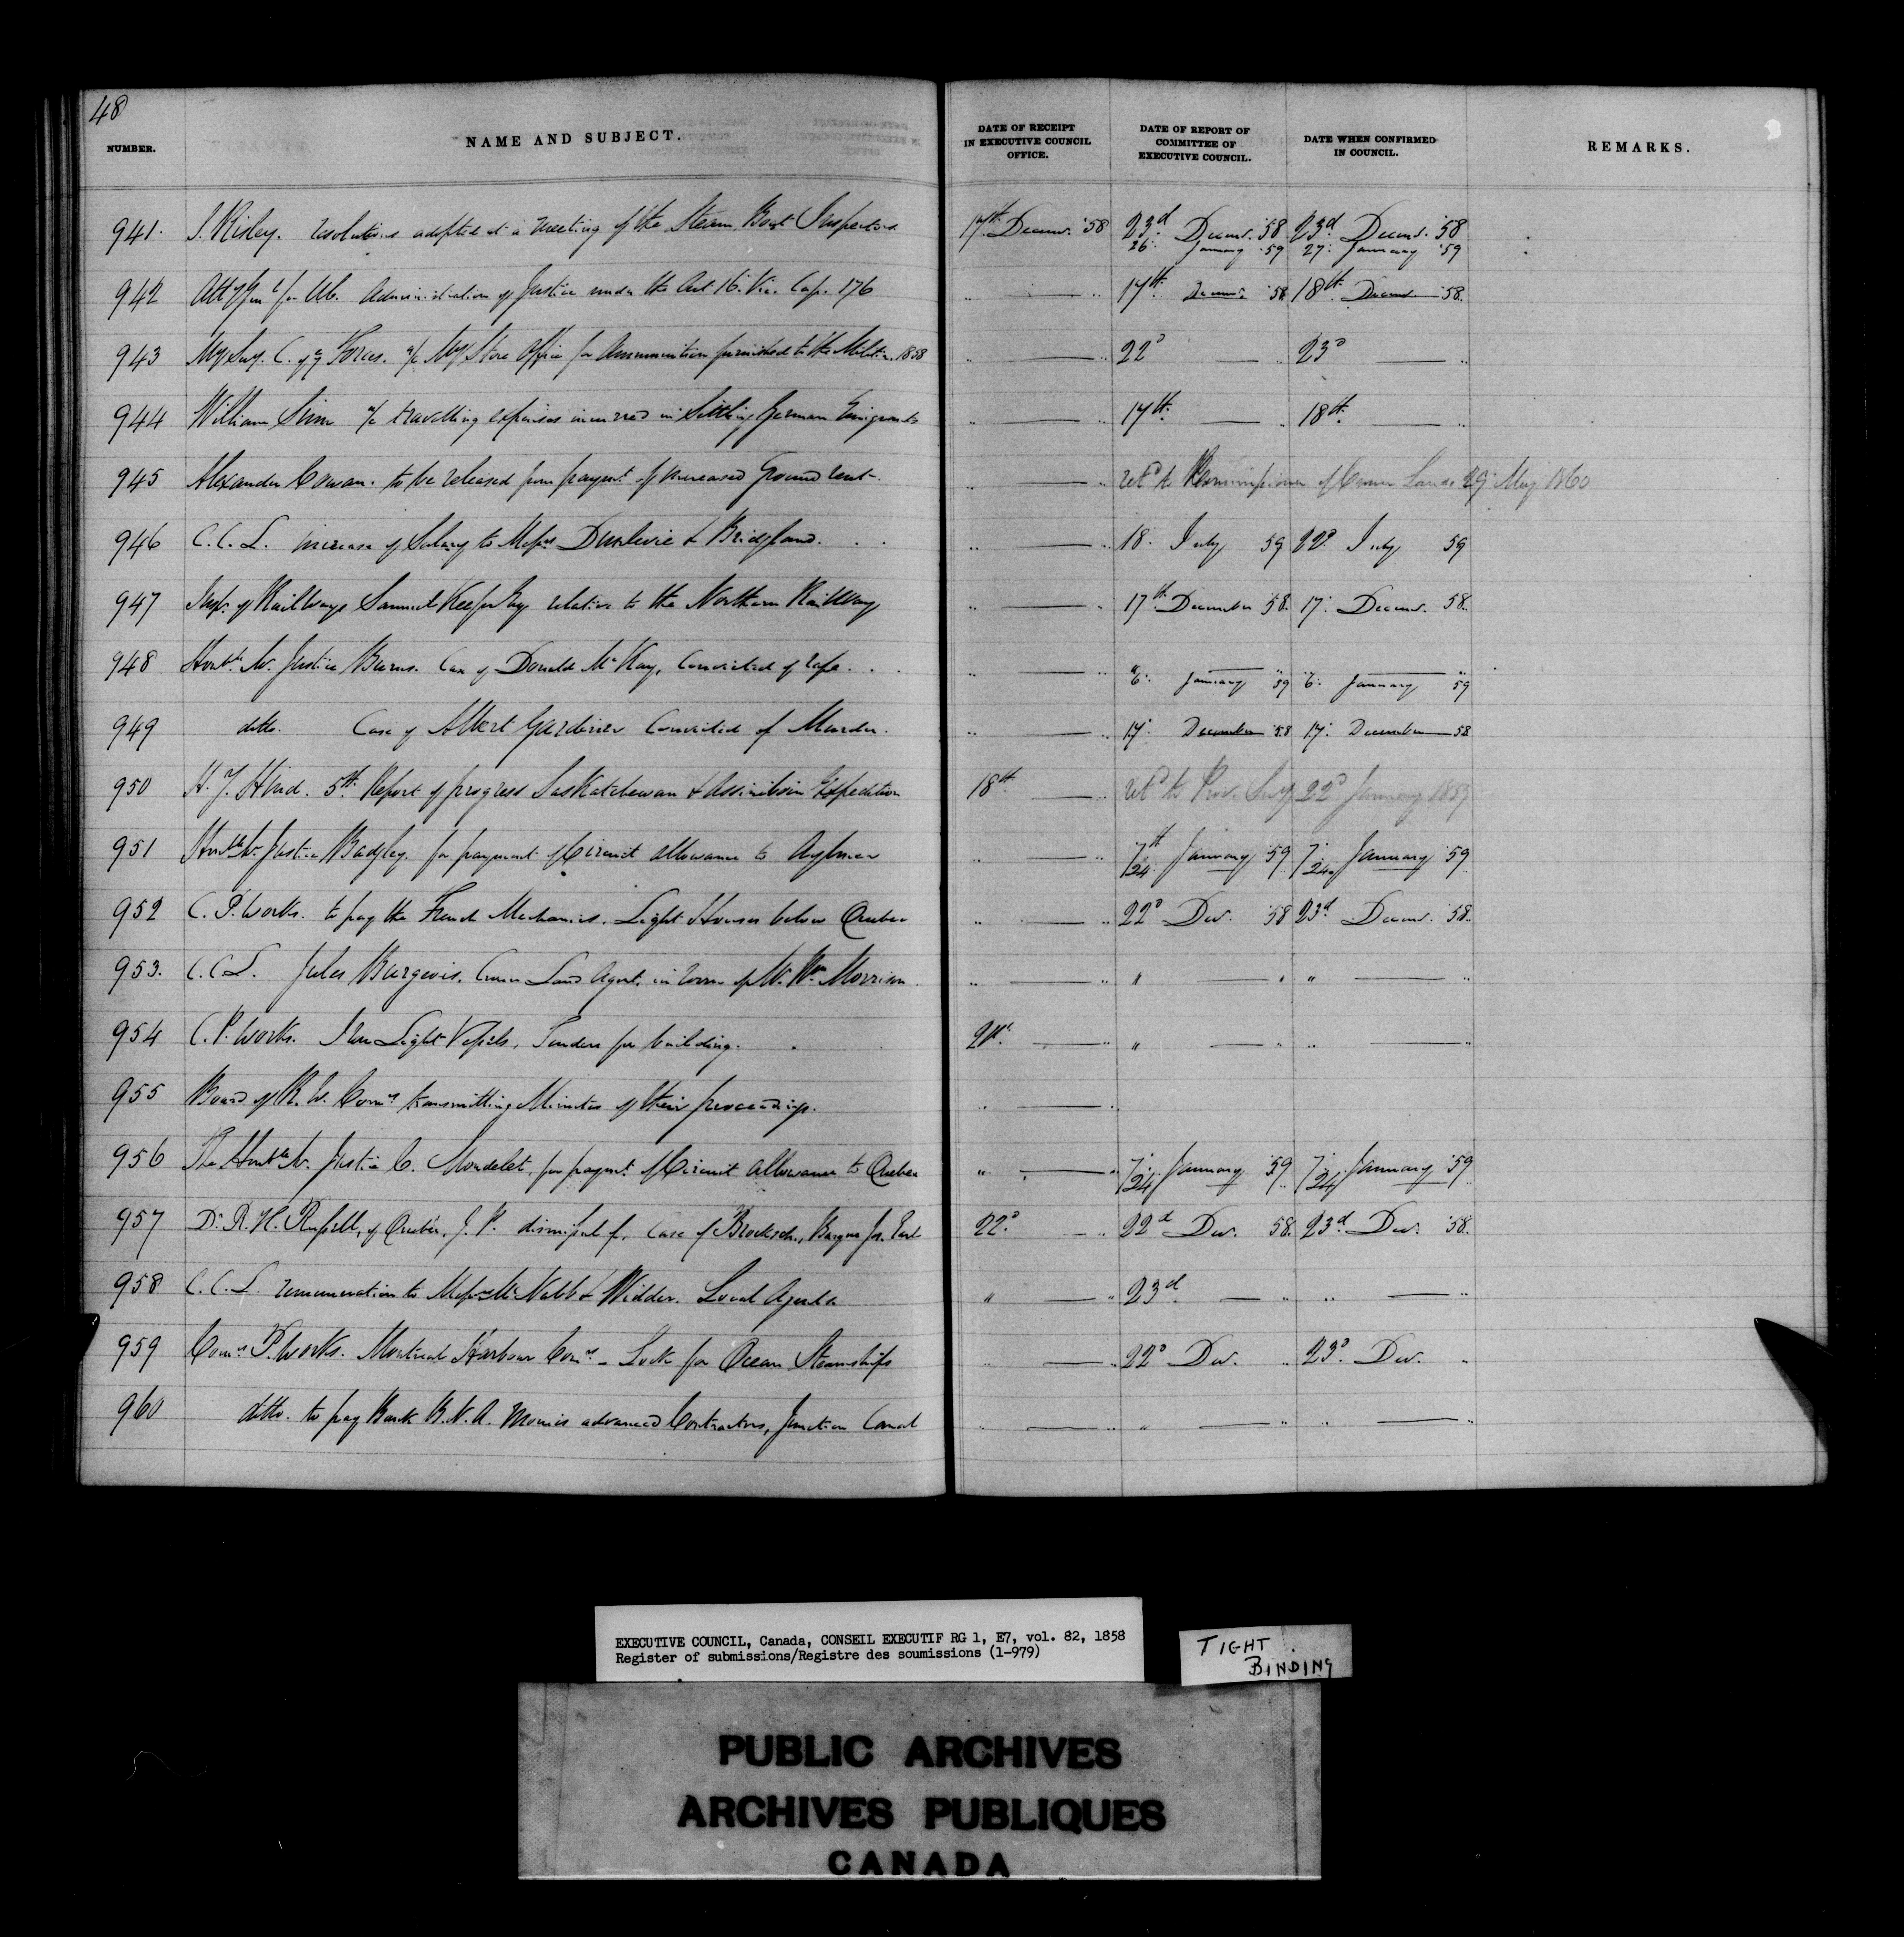 48
NUMBER. NAME AND SUBJECT. DATE OF RECEIPT IN EXECUTIVE COUNCIL OFFICE. DATE OF REPORT OF COMMITTEE OF EXECUTIVE COUNCIL. DATE WHEN CONFIRMED IN COUNCIL. REMARKS.
941. S. Risley. resolutions adopted at a meeting of the Steam Boat Inspectors 17th Decemr. '58 23d Decemr. '58 23d Decemr. '58
26. January '59 27. January '59
942 Atty Genl for UC. Administration of Justice under the Act 16. Vic. Cap. 176 " — " 17th Decemr. 58 18th Decemr 58.
943 Mily Secy. C. of ye Forces. a/c Mily Store Office for Ammunition furnished to the Militia. 1858 " — " 22d — " 23d — "
944 William Sinn a/c travelling expenses incurred in Settling German Emigrants " — " 17th — " 18th — "
945 Alexander Cowan. to be released from paymt of increased Ground rent " — " retd to Commissioner of Crown Lands 29 May 1860
946 C.C.L. increase of Salary to Messrs Dunlevie & Bridgland. " — " 18. July 59 22d July 59
947 Inspr of Railways Samuel Keefer Esq relative to the Northern Railway " — " 17th December 58. 17. Decemr. 58.
948 Honble Mr. Justice Burns. Case of Donald McKay, Convicted of rape. " — " " — "
6. January 59 6. January 59
949 ditto. Case of Albert Gardiner Convicted of Murder. " — " 17. December 58 17. December 58
950 H. Y. Hind. 5th Report of progress Saskatchewan & Assiniboin Expedition 18th — " retd to Prov. Secy 22d January 1859
951 Honble Mr Justice Badgley. for payment of Circuit allowance to Aylmer " — " 7th/24. January 59 7./24. January 59
952 C. P. Works. to pay the French Mechanics. Light Houses below Quebec " — " 22d Decr. 58 23d Decemr. 58.
953. C.C.L. Jules Burgeois. Crown Land Agent. in room of Mr. Wm Morrison " — " " — " " — "
954 C. P. Works. Iron Light Vessels, Tenders for building. 21st. — " " — " " — "
955 Board of R. W. Comrs transmitting Minutes of their proceedings. " — "
956 The Honble Mr. Justice C. Mondelet, for paymt. of Circuit allowance to Quebec " — " 7./24 January 59 7./24 January '59
957 Dr. R. H. Russell, of Quebec, J. P. dismissal of, Case of 22d — " 22d Decr. 58. 23d Decr. '58.
958 C.C.L. remuneration to Messrs McNabb & Widder. Local Agents " — " 23d — " " — "
959 Comrs P. Works. Montreal Harbour Comrs — Lock for Ocean Steamships " — " 22d Decr. " 23d. Decr. "
960 ditto. to pay Bank B.N.A. monies advanced Contractors, Junction Canal " — " " — " " — "
EXECUTIVE COUNCIL, Canada, CONSEIL EXECUTIF RG 1, E7, vol. 82, 1858
Register of submissions/Registre des soumissions (1-979)
TIGHT
BINDING
PUBLIC ARCHIVES
ARCHIVES PUBLIQUES
CANADA